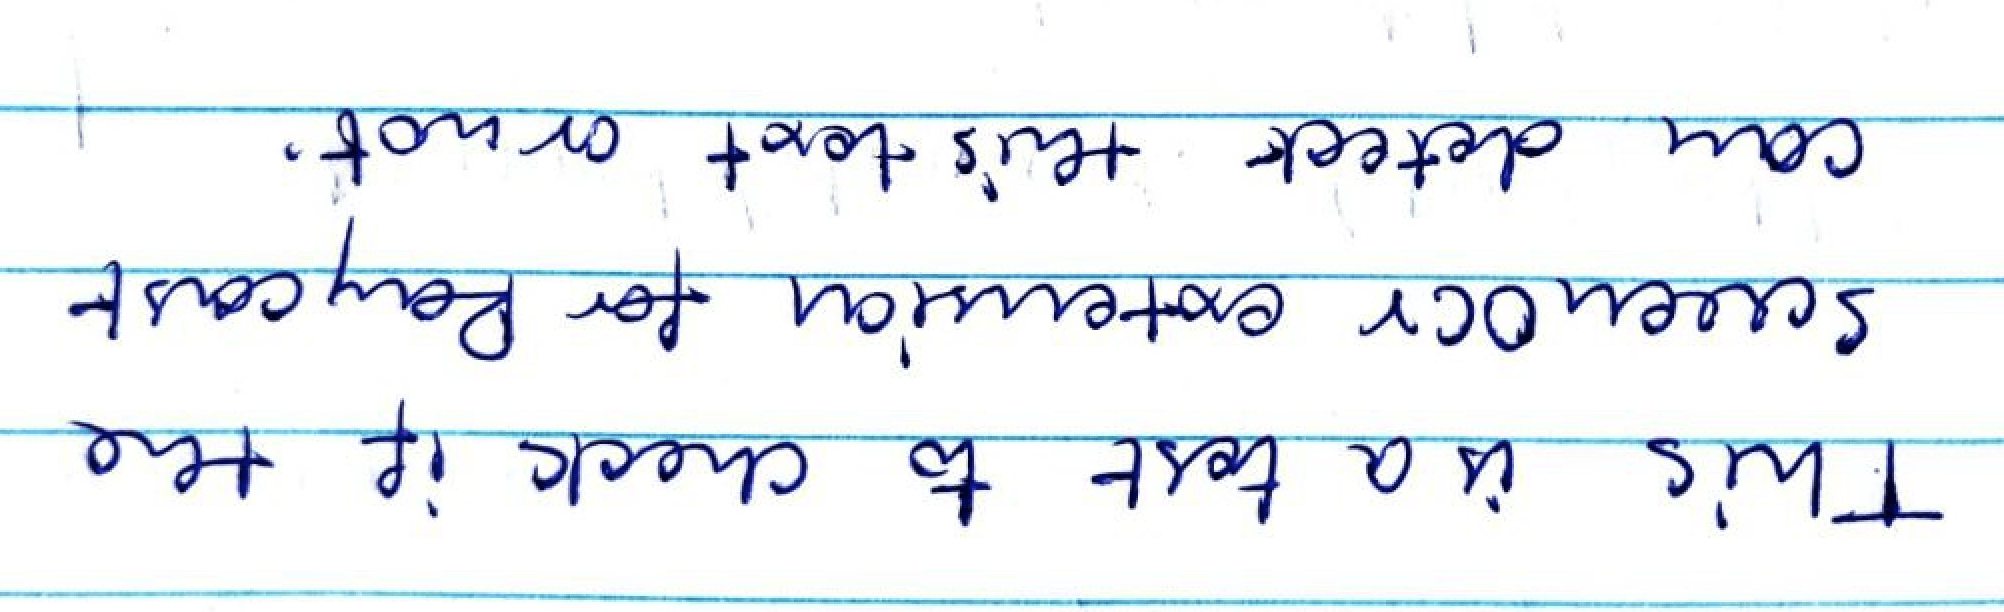 This is a test to check if the
ScreenOCR extension for Raycast
can detect this text or not.